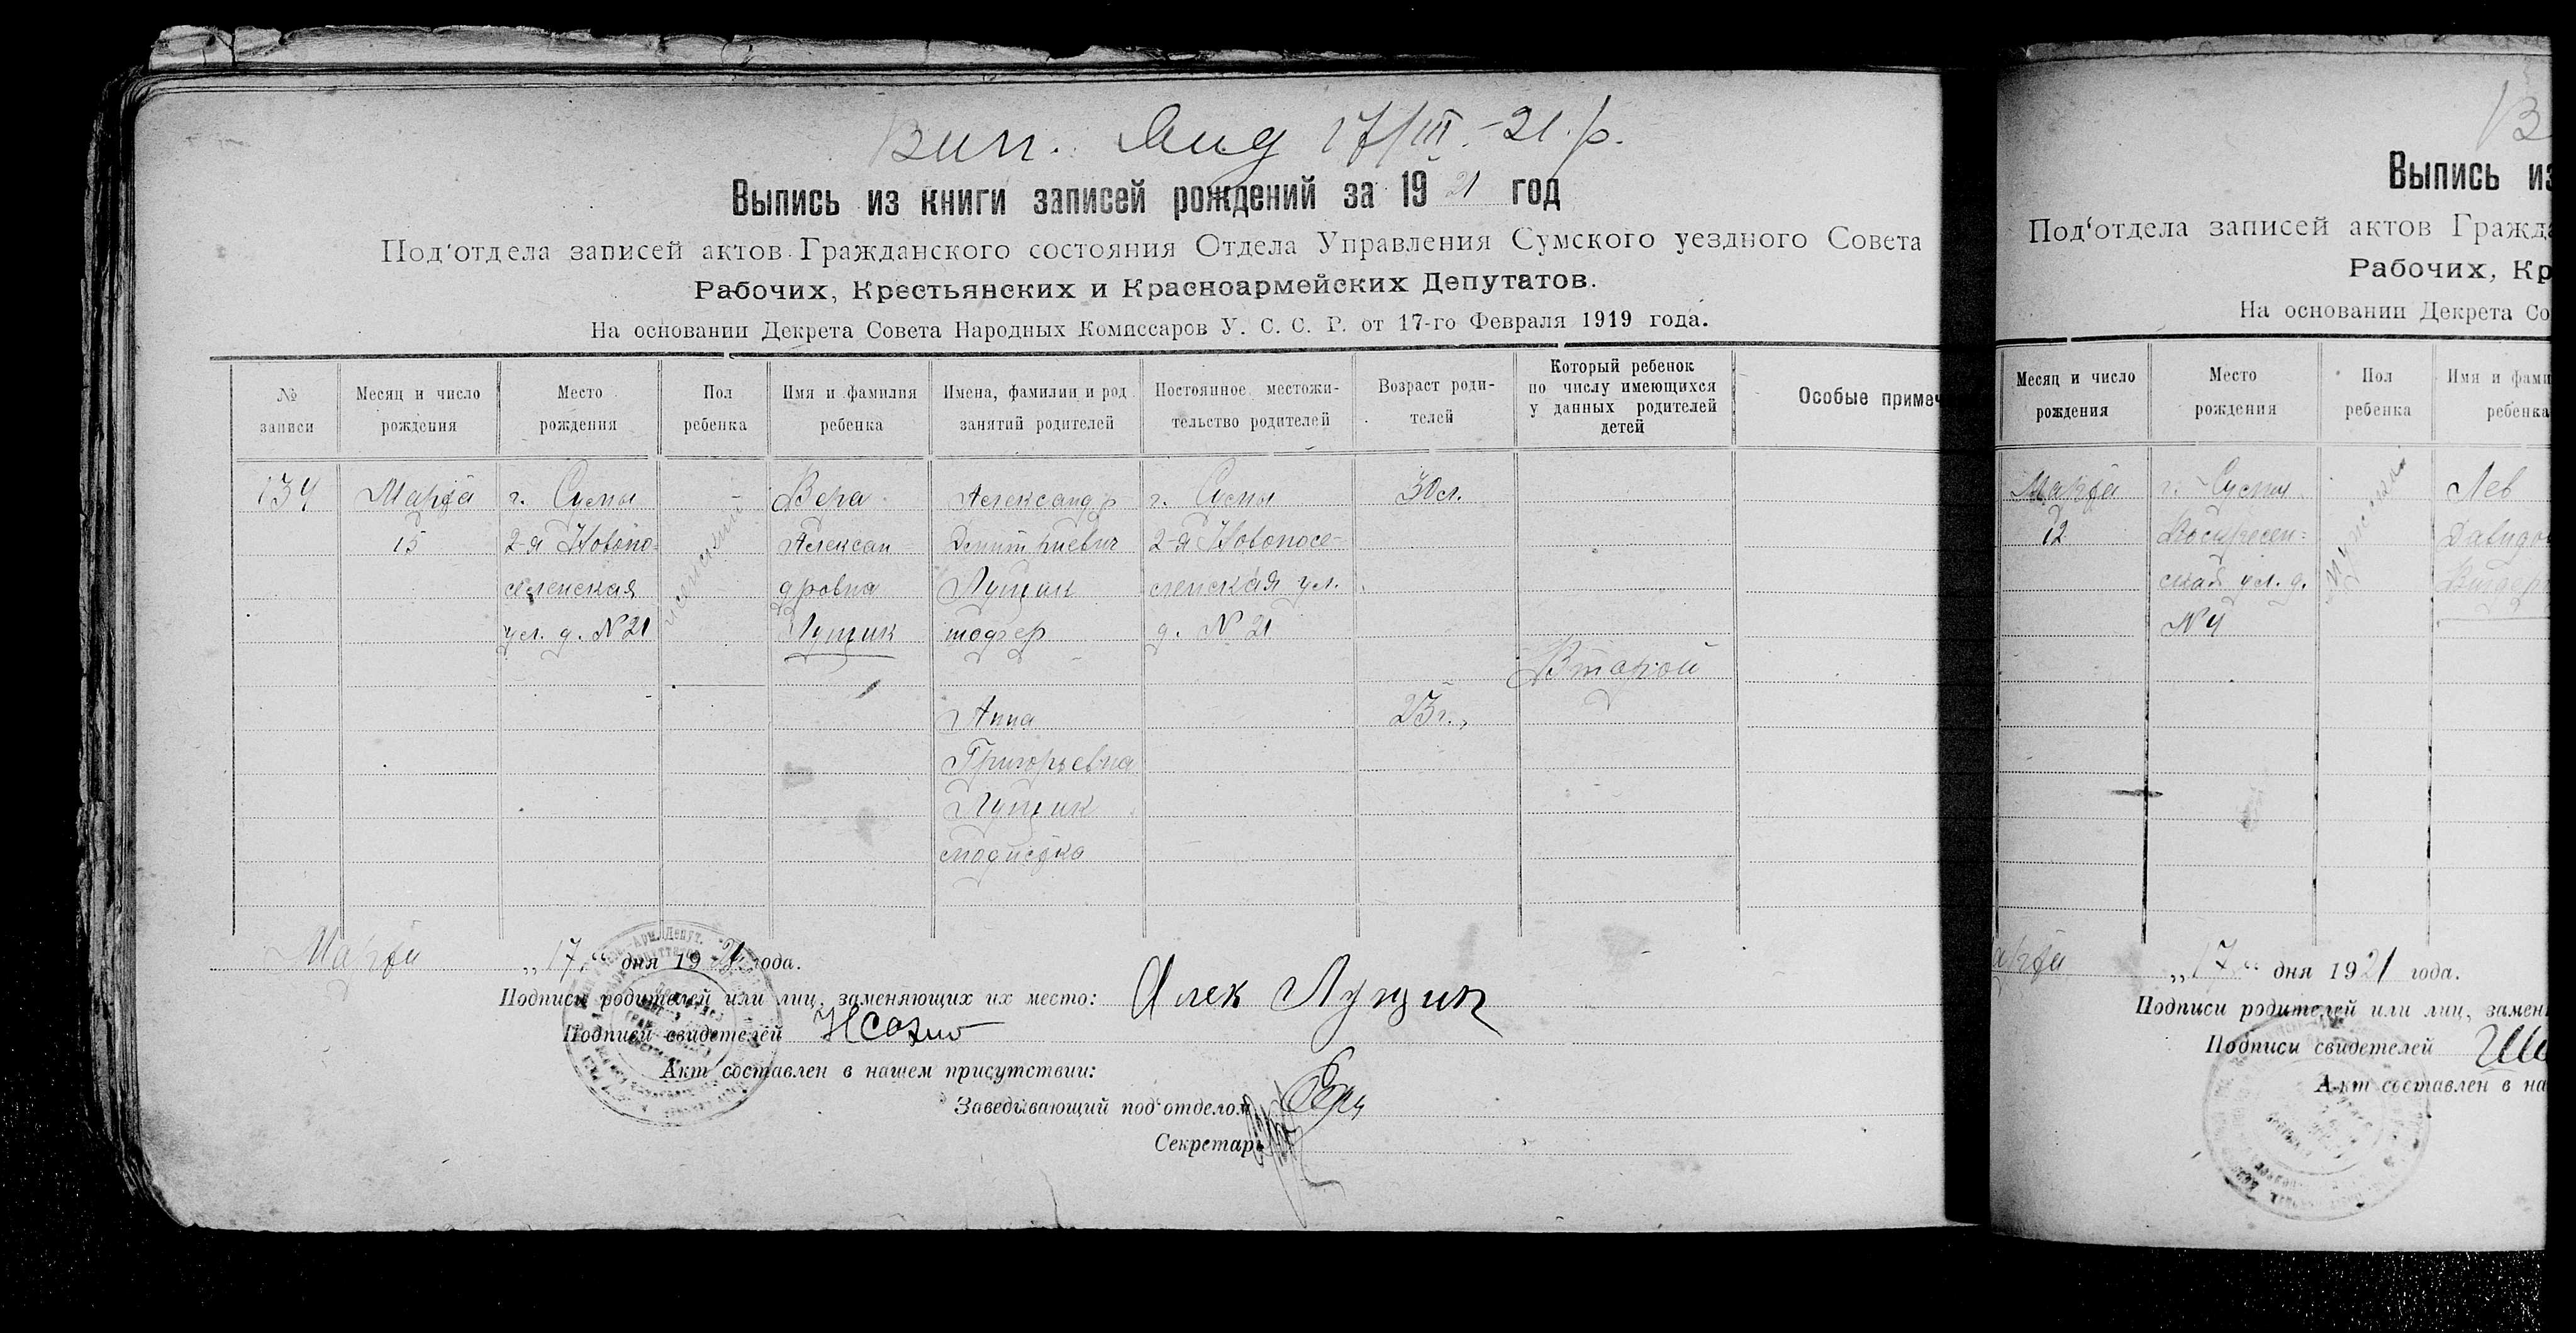 Вип. Вид 17/III.-21.р.
Выпись из книги записей рождений за 1921 год
Под'отдела записей актов Гражданского состояния Отдела Управления Сумского уездного Совета
Рабочих, Крестьянских и Красноармейских Депутатов.
На основании Декрета Совета Народных Комиссаров У. С. С. Р. от 17-го Февраля 1919 года.
№ записи
Месяц и число рождения
Место рождения
Пол ребенка
Имя и фамилия ребенка
Имена, фамилии и род занятий родителей
Постоянное местожительство родителей
Возраст родителей
Который ребенок по числу имеющихся у данных родителей детей
Особые примеч
134
Марта
15
г. Сумы
2-я Новопо-
селенская
ул. д. N 21
женский
Вера
Алексан-
дровна
Лущик
Александр
Дмитриевич
Лущик
г. Сумы
2-я Новопосе-
ленская ул.
д. N 21
30 л.
Второй
Анна
Григорьевна
Лущик
модистка
23 г.
Марта „17“ дня 1921 года.
Подписи родителей или лиц, заменяющих их место: Алек Лущик
Подписи свидетелей
Акт составлен в нашем присутствии:
Заведывающий под'отделом
Секретарь
Выпись из
Под'отдела записей актов Гражда
Рабочих, Кр
На основании Декрета Со
Месяц и число рождения
Место рождения
Пол ребенка
Имя и фами
ребенка
Марта
12
г. Сумы
Воскресен-
ская ул. д.
N 4
Мужской
Лев
Давидов
арта „17“ дня 1921 года.
Подписи родителей или лиц, замен
Подписи свидетелей
Акт составлен в на